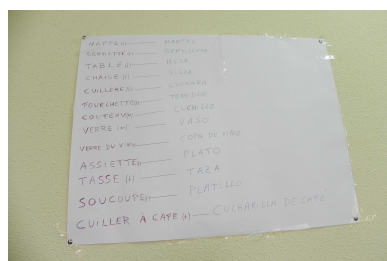 NAPPE (f) MANTEL
SERVIETTE (f) SERVILLETA
TABLE (f) MESA
CHAISE (f) SILLA
CUILLERE (f) CUCHARA
FOURCHETTE (f) TENEDOR
COUTEAU (m) CUCHILLO
VERRE (m) VASO
VERRE DU VIN (m) COPA DE VINO
ASSIETTE (f) PLATO
TASSE (f) TAZA
SOUCOUPE (f) PLATILLO
CUILLER À CAFE (f) CUCHARILLA DE CAFÉ